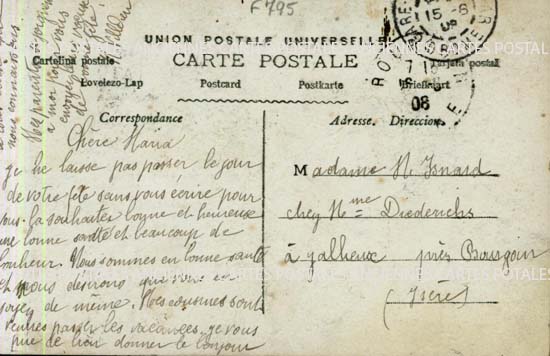 F795
UNION POSTALE UNIVERSELLE
CARTE POSTALE
Cartolina postale
Tarjeta postal
Levelezo-Lap
Postcard
Postkarte
Briefkaart
15-6
08
Correspondance
Adresse. Direccion
Chère Maria
je ne laisse pas passer le jour
de votre fête sans vous écrire pour
vous la souhaiter bonne et heureuse
une bonne santé et beaucoup de
bonheur. Nous sommes en bonne santé
et nous desirons que vous en
soyez de même. Mes cousines sont
venues passer les vacances. je vous
prie de bien donner le bonjour
Madame N Isnard
chez Mme Diederichs
à Jalheux près Bourgoin
(Isère)